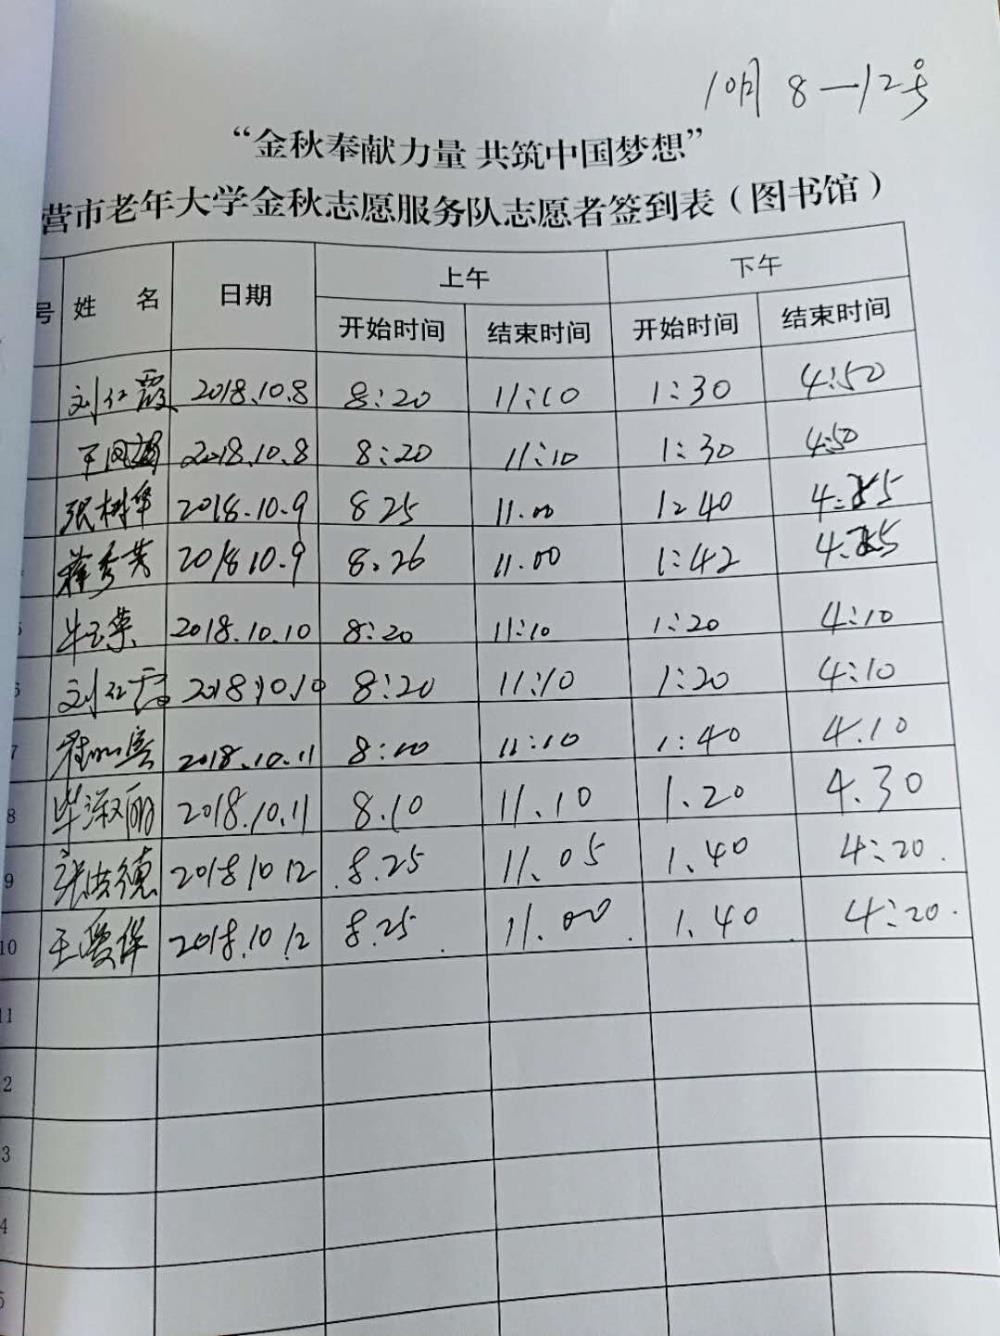 10月8—12号
“金秋奉献力量 共筑中国梦想”
营市老年大学金秋志愿服务队志愿者签到表（图书馆）
号 姓 名 日期 上午 下午
开始时间 结束时间 开始时间 结束时间
刘红霞 2018.10.8 8:20 11:10 1:30 4:50
2018.10.8 8:20 11:10 1:30 4:50
张树华 2018.10.9 8 25 11.00 1:40 4:
蒋秀芳 2018 10.9 8.26 11.00 1:42 4:
5 牛玉荣 2018.10.10 8:20 11:10 1:20 4:10
6 刘红霞 2018.10.10 8:20 11:10 1:20 4:10
7 2018.10.11 11:10 1:40 4.10
8 毕淑丽 2018.10.11 8.10 11.10 1.20 4.30
9 张洪德 2018 10 12 8.25 11.05 1.40 4:20.
10 王爱华 2018.10.12 8.25 11.00 1.40 4:20.
11
2
3
4
5